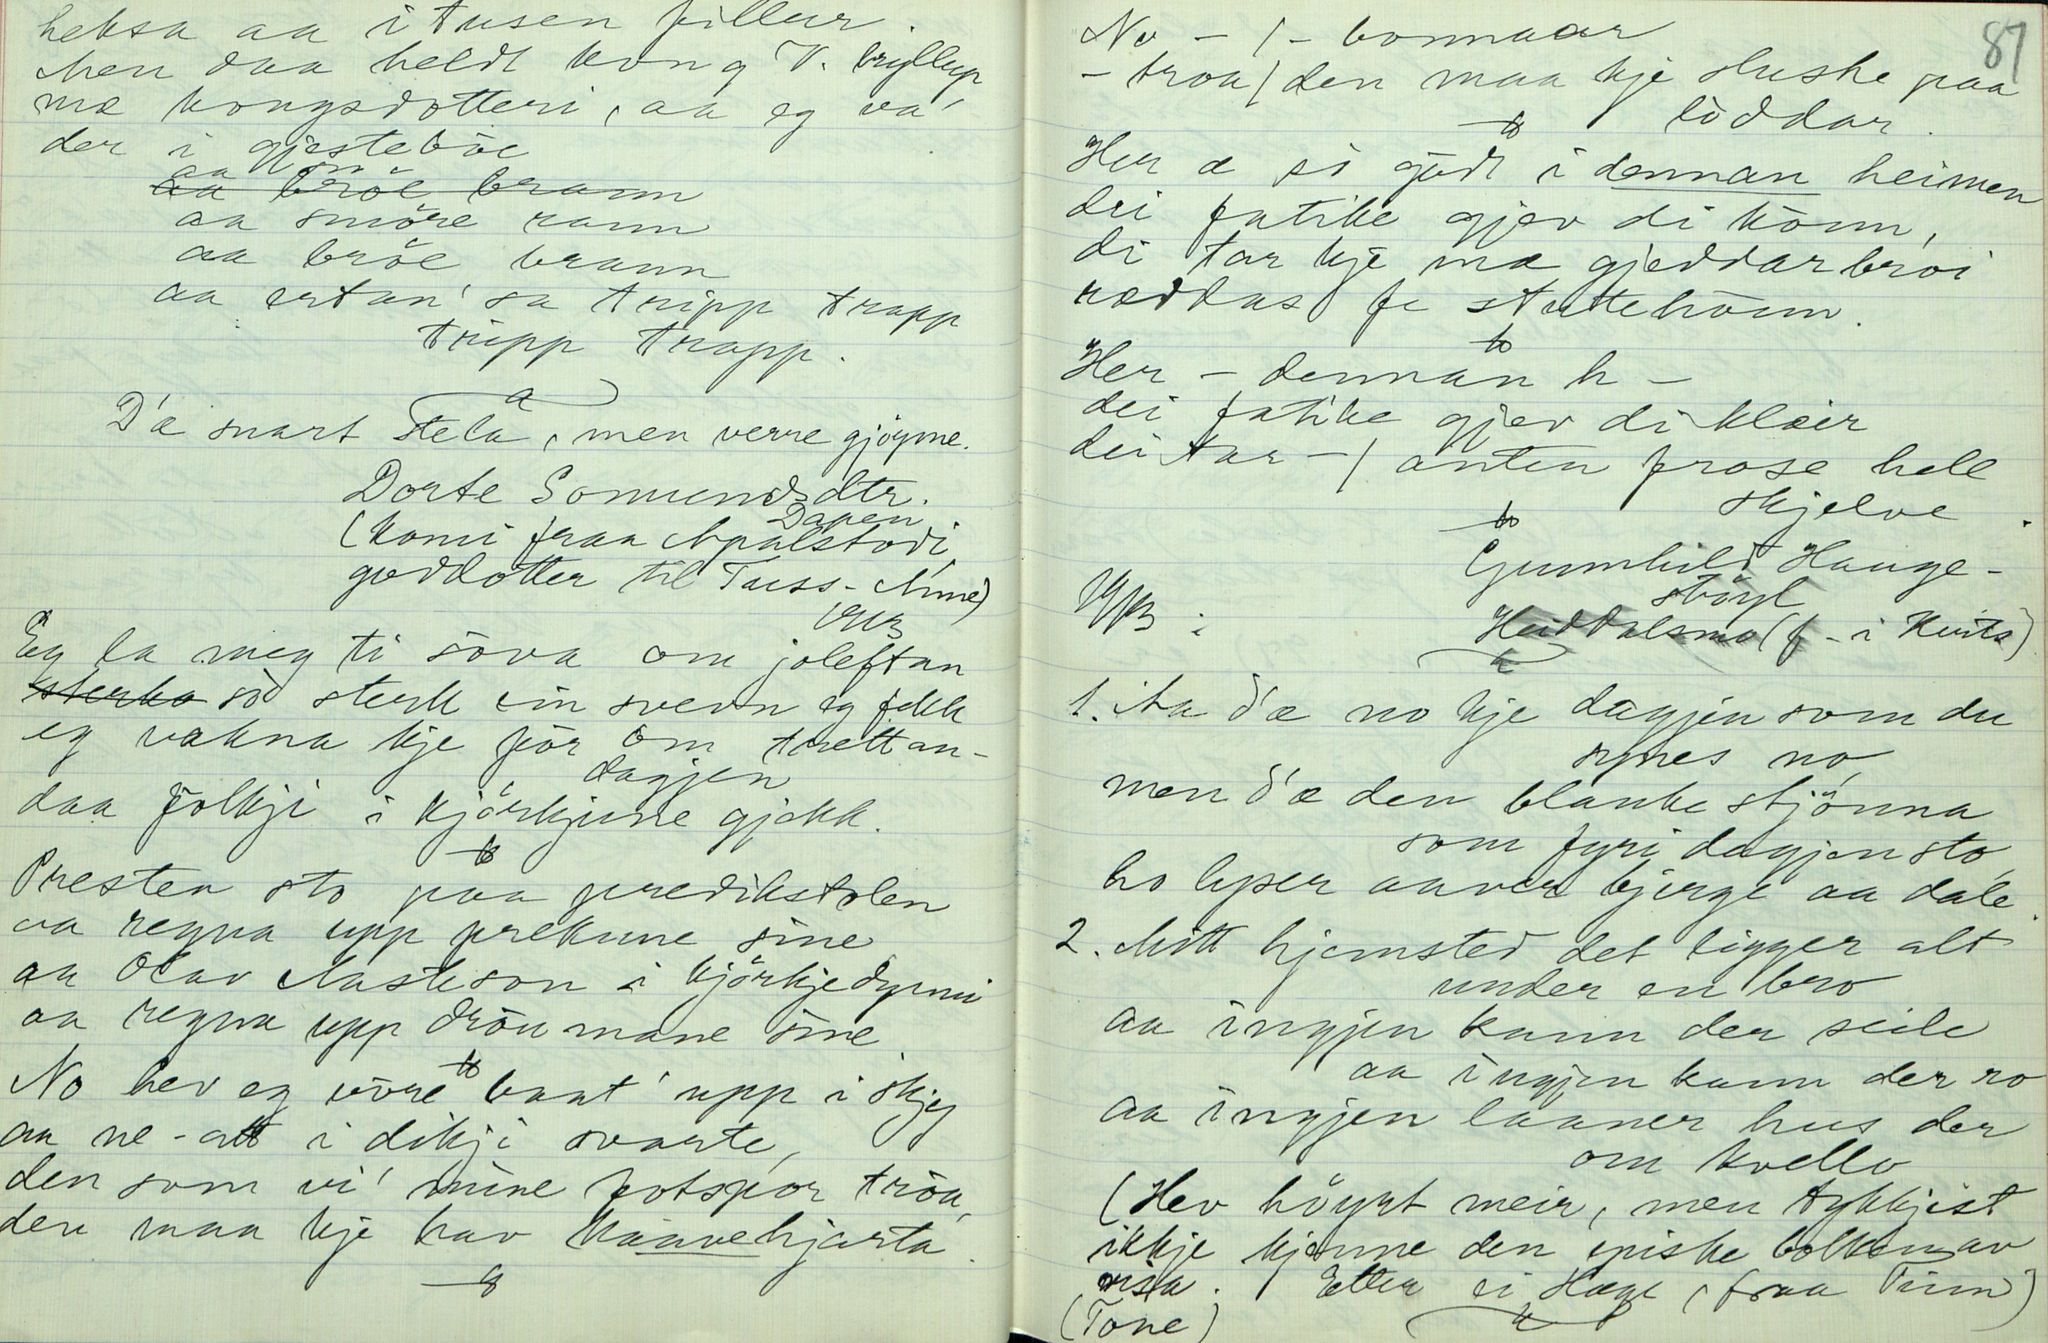 heksa aa i tusen fillur.
Men daa heldt kong V. bryllup
mæ kongsdotteri, aa eg va'
der i gjesteböe
aa kom
aa bröe brann
aa smöre rann
aa bröe brann
aa ertan' sa tripp trapp
tripp trapp.
D'æ snart stela, men verre gjöyme.
Dorte Somundsdtr.
Dapen
(komi fraa Apalstodi,
goddotter til Tuss-Anne)
Eg la meg ti söva om joleftan
sterke so sterk ein svevn eg fekk
eg vakna kje för om trettan-
dagjen
daa folkji i kjörkjune gjekk.
Presten sto paa predikstolen
aa regna upp prekune sine
aa Olav Aasteson i kjörkjedynni
aa regna upp dröumane sine.
No hev eg vöre baat' upp i skjy
aa ne-att i dikji svarte,
den som vi' mine fotspor tröa,
den maa kje hav kaavehjarta.
87
No - / - bonnaar
- troa / den maa kje sluske paa
löddar.
Her æ so godt i dennan heimen
dei fatike gjev di könn,
di tar kje mæ gjeddarbroi
ræddas fe stuttehönn.
Her - dennan h -
dei fatike gjev di klæir
dei tar - / anten frose hell
skjelve.
Gunnhild Hauge-
stöyl
Heiddalsmo (f - i Kvits)
1. Aa d'æ no kje dagjen som du
synes no,
men d'æ den blanke stjönna
som fyri dagjen sto,
ho lyser aaver bjerge aa dale.
2. Mitt hjemsted det ligger alt
under en bro
aa ingjen kann der seile
aa ingjen kann der ro
aa ingjen laaner hus der
om kvello
(Hev höyrt meir, men tykkjist
ikkje kjenne den episke bolken av
visa. Etter ei Hæge, fraa Tinn)
(Tone)